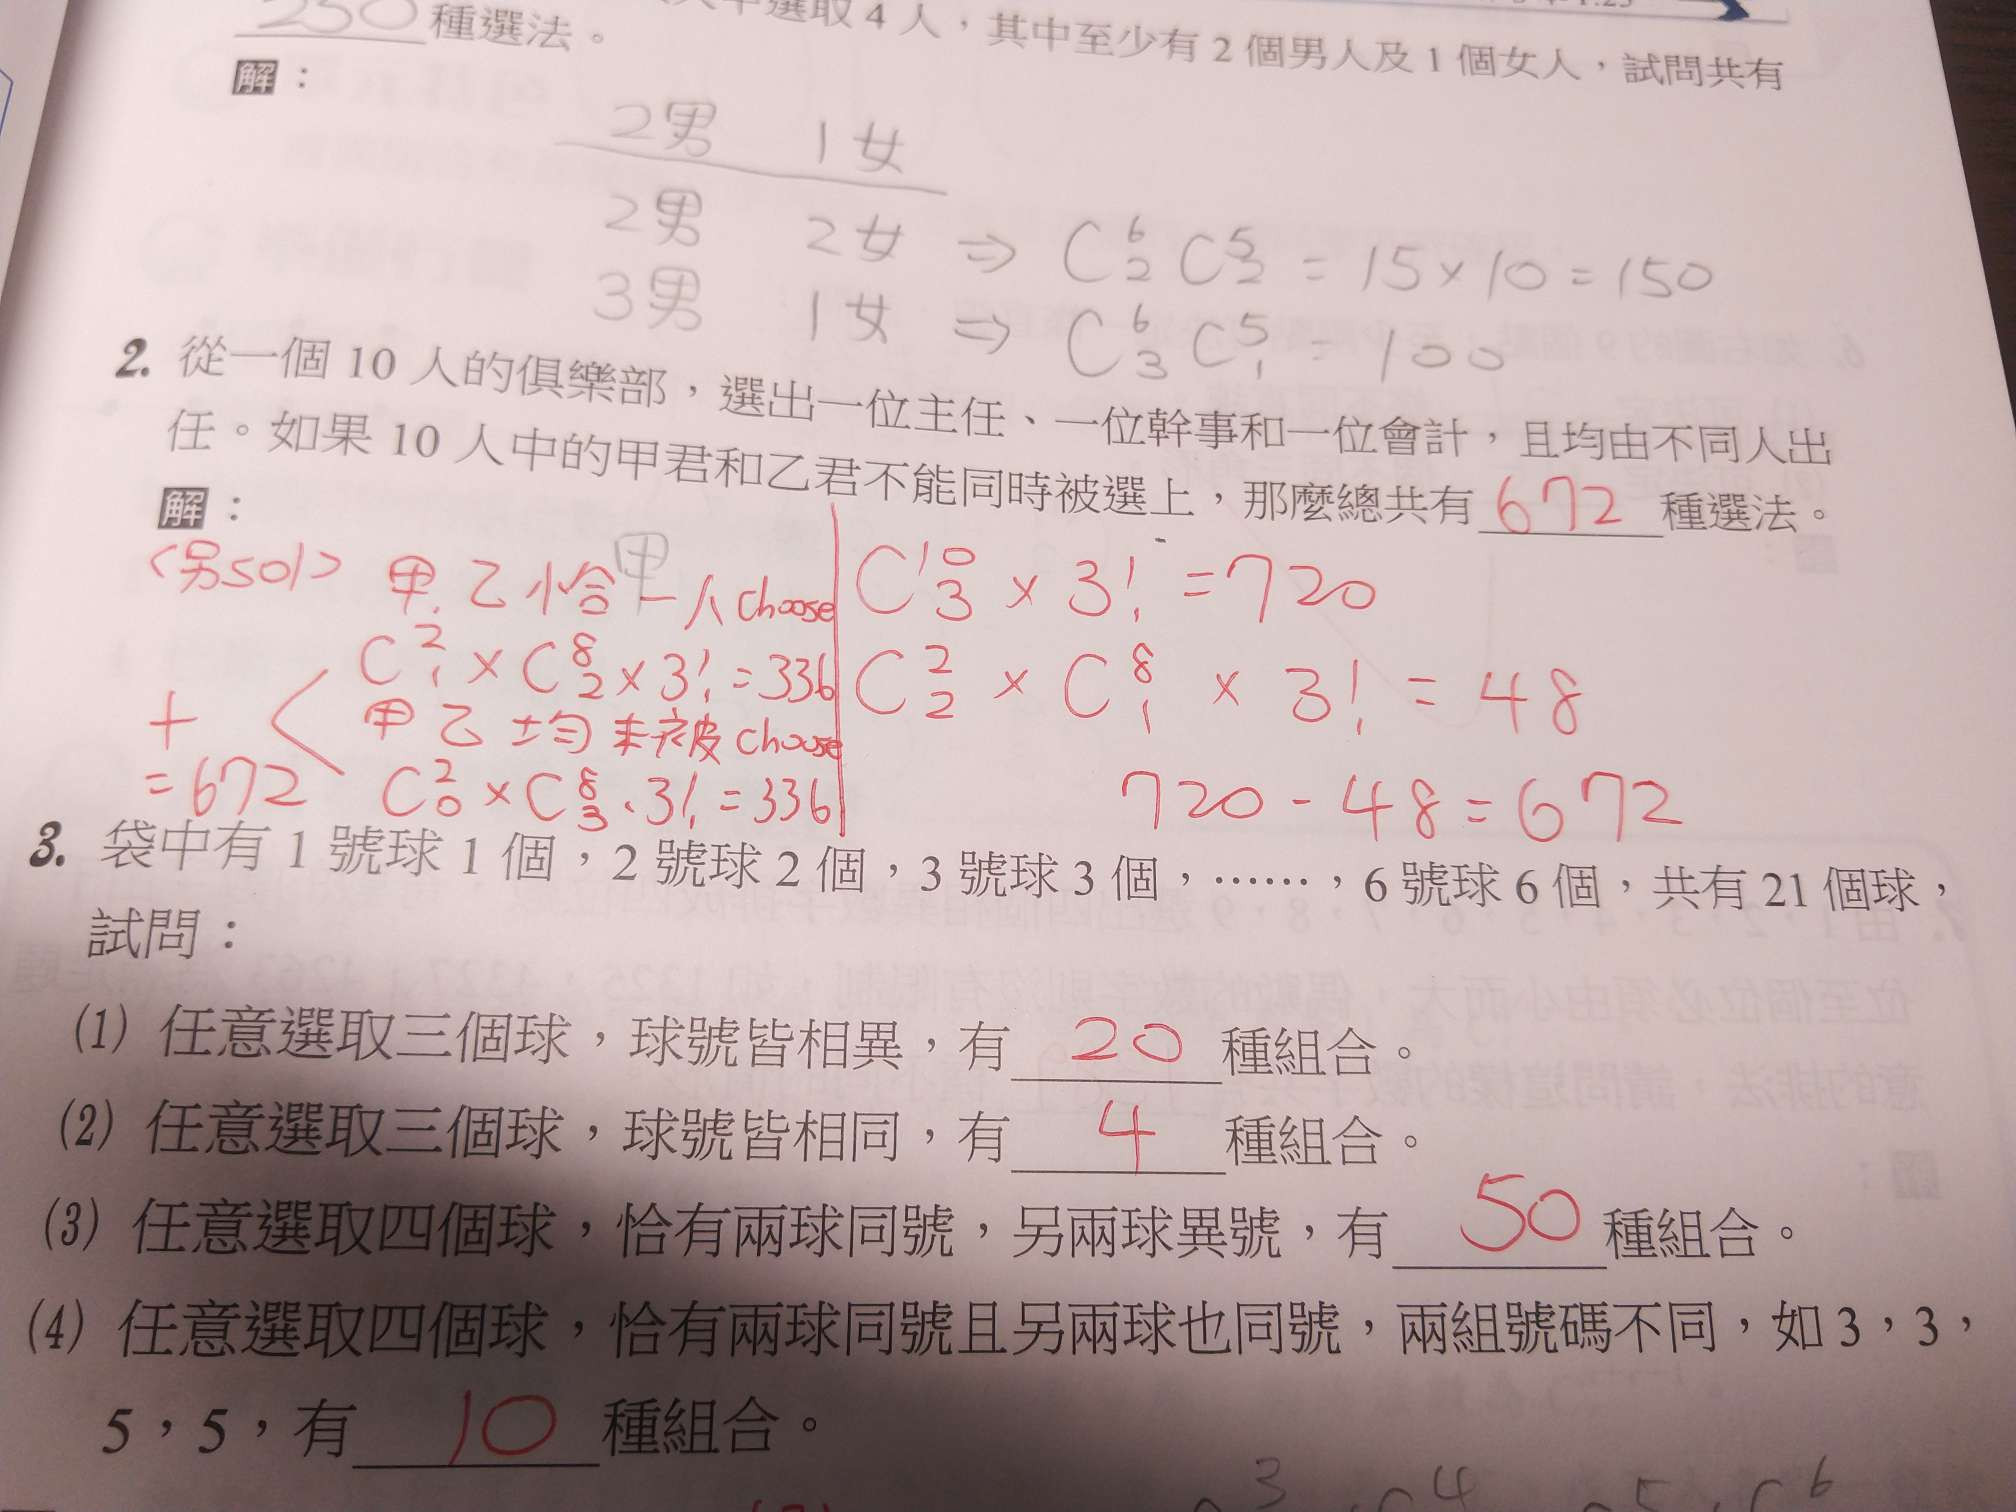 選取 4 人，其中至少有 2 個男人及 1 個女人，試問共有
250 種選法。
解：
2男 1女
2男 2女 ⇒ C⁶₂ C⁵₂ = 15 × 10 = 150
3男 1女 ⇒ C⁶₃ C⁵₁ = 100
2. 從一個 10 人的俱樂部，選出一位主任、一位幹事和一位會計，且均由不同人出
任。如果 10 人中的甲君和乙君不能同時被選上，那麼總共有 672 種選法。
解：
<另sol> 甲.乙恰一人choose
甲
C²₁ × C⁸₂ × 3! = 336
甲乙均未被choose
C²₀ × C⁸₃ . 3! = 336
+
= 672
C¹⁰₃ × 3! = 720
C²₂ × C⁸₁ × 3! = 48
720 - 48 = 672
3. 袋中有 1 號球 1 個，2 號球 2 個，3 號球 3 個，……，6 號球 6 個，共有 21 個球，
試問：
(1) 任意選取三個球，球號皆相異，有 20 種組合。
(2) 任意選取三個球，球號皆相同，有 4 種組合。
(3) 任意選取四個球，恰有兩球同號，另兩球異號，有 50 種組合。
(4) 任意選取四個球，恰有兩球同號且另兩球也同號，兩組號碼不同，如 3，3，
5，5，有 10 種組合。